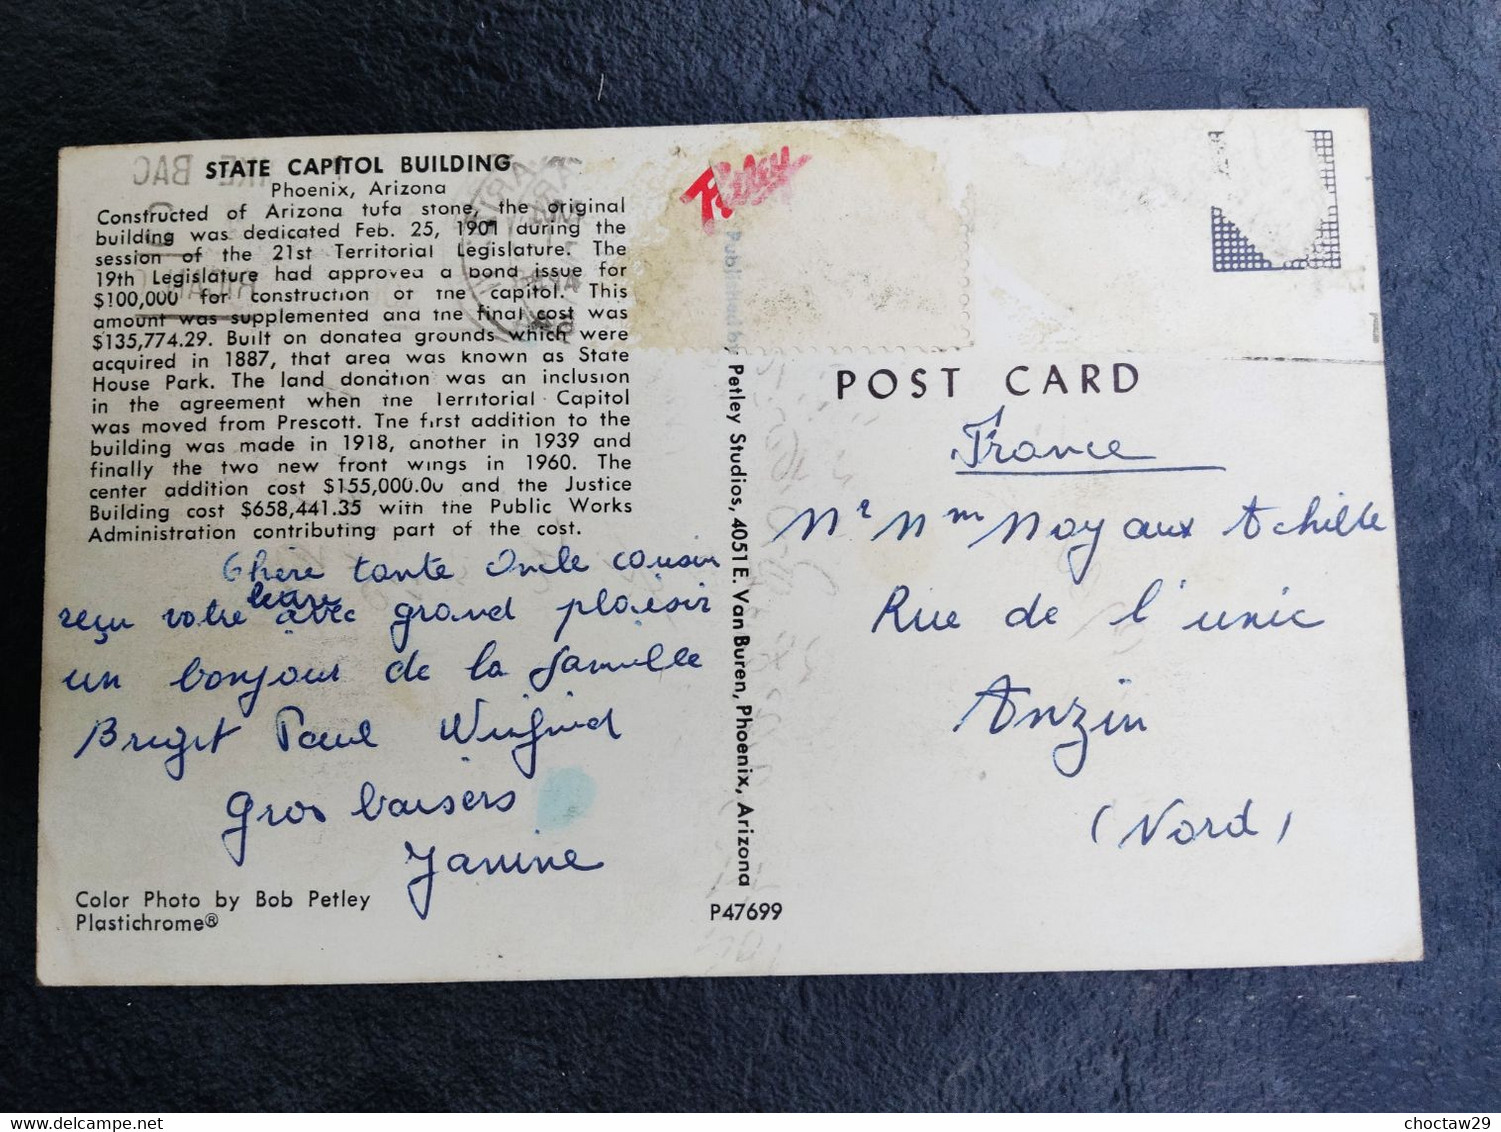 STATE CAPITOL BUILDING
Phoenix, Arizona
Constructed of Arizona tufa stone, the original
building was dedicated Feb. 25, 1901 during the
session of the 21st Territorial Legislature. The
19th Legislature had approved a bond issue for
$100,000 for construction of the capitol. This
amount was supplemented and the final cost was
$135,774.29. Built on donated grounds which were
acquired in 1887, that area was known as State
House Park. The land donation was an inclusion
in the agreement when the Territorial Capitol
was moved from Prescott. The first addition to the
building was made in 1918, another in 1939 and
finally the two new front wings in 1960. The
center addition cost $155,000.00 and the Justice
Building cost $658,441.35 with the Public Works
Administration contributing part of the cost.
Chère tante Oncle cousin
reçu votre lettre avec grand plaisir
un bonjour de la famille
Brigit Paul Winfried
Gros baisers
Janine
Color Photo by Bob Petley
Plastichrome®
Petley
Published by Petley Studios, 4051 E. Van Buren, Phoenix, Arizona
P47699
POST CARD
France
Mr Mm Noyaux Achille
Rue de l'unic
Anzin
(Nord)
choctaw29